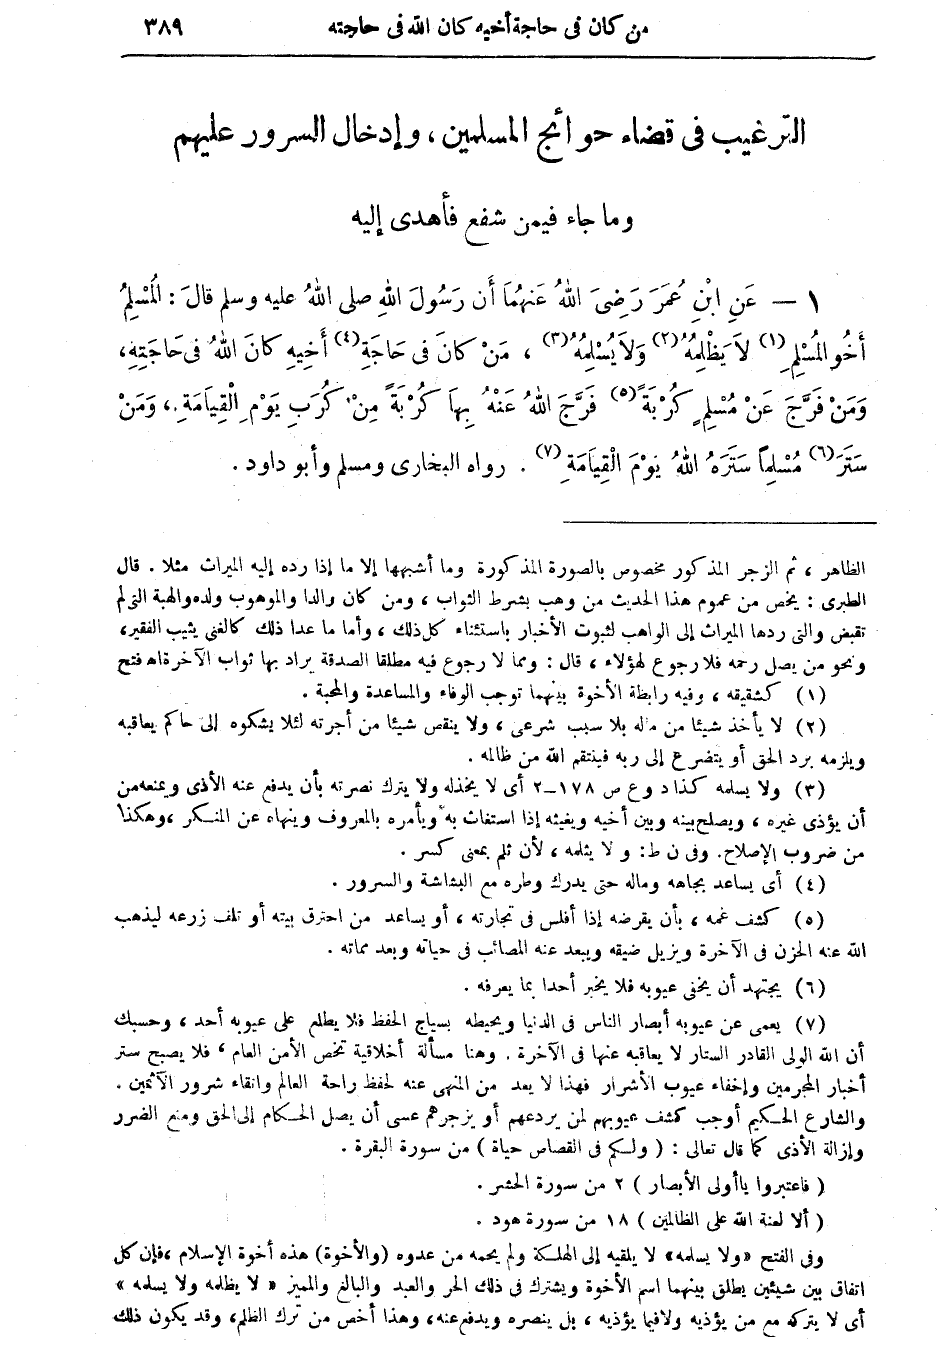 من كان فى حاجة أخيه كان الله فى حاجته ٣٨٩
الترغيب فى قضاء حوائج المسلمين ، وإدخال السرور عليهم
وما جاء فيمن شفع فأهدى إليه
١ — عَنِ ابْنِ عُمَرَ رَضِىَ اللهُ عَنهُمَا أَن رَسُولَ اللهِ صلى اللهُ عليه وسلم قالَ : الْمُسْلِمُ
أَخُو الْمُسْلِمِ (١) لاَ يَظْلِمُهُ (٢) وَلاَ يُسْلِمُهُ (٣) ، مَنْ كانَ فى حَاجَةِ (٤) أَخِيهِ كانَ اللهُ فى حَاجَتِهِ ،
وَمَنْ فَرَّجَ عَنْ مُسْلِمٍ كُرْبَةً (٥) فَرَّجَ اللهُ عَنْهُ بِهَا كُرْبَةً مِنْ كُرَبِ يَوْمِ الْقِيَامَةِ ، وَمَنْ
سَتَرَ (٦) مُسْلِماً سَتَرَهُ اللهُ يَوْمَ الْقِيَامَةِ (٧) . رواه البخارى ومسلم وأبو داود .
الظاهر ، ثم الزجر المذكور مخصوص بالصورة المذكورة وما أشبهها إلا ما إذا رده إليه الميراث مثلا . قال
الطبرى : يخص من عموم هذا الحديث من وهب بشرط الثواب ، ومن كان والدا والموهوب ولده والهبة التى لم
تقبض والتى ردها الميراث إلى الواهب لثبوت الأخبار باستثناء كل ذلك ، وأما ما عدا ذلك كالغنى يثيب الفقير،
ونحو من يصل رحمه فلا رجوع لهؤلاء ، قال : ومما لا رجوع فيه مطلقا الصدقة يراد بها ثواب الآخرة اه فتح
(١) كشقيقه ، وفيه رابطة الأخوة بينهما توجب الوفاء والمساعدة والمحبة .
(٢) لا يأخذ شيئا من ماله بلا سبب شرعى ، ولا ينقص شيئا من أجرته لئلا يشكوه إلى حاكم يعاقبه
ويلزمه برد الحق أو يتضرع إلى ربه فينتقم الله من ظالمه .
(٣) ولا يسلمه كذا د و ع ص ١٧٨-٢ أى لا يخذله ولا يترك نصرته بأن يدفع عنه الأذى ويمنعه من
أن يؤذى غيره ، ويصلح بينه وبين أخيه ويغيثه إذا استغاث به ويأمره بالمعروف وينهاه عن المنكر ، وهكذا
من ضروب الإصلاح. وفى ن ط: و لا يثلمه ، لأن ثلم بمعنى كسر .
(٤) أى يساعد بجاهه وماله حتى يدرك وطره مع البشاشة والسرور .
(٥) كشف غمه ، بأن يقرضه إذا أفلس فى تجارته ، أو يساعد من احترق بيته أو تلف زرعه ليذهب
الله عنه الحزن فى الآخرة ويزيل ضيقه ويبعد عنه المصائب فى حياته وبعد مماته .
(٦) يجتهد أن يخفى عيوبه فلا يخبر أحدا بما يعرفه .
(٧) يعمى عن عيوبه أبصار الناس فى الدنيا ويحيطه بسياج الحفظ فلا يطلع على عيوبه أحد ، وحسبك
أن الله الولى القادر الستار لا يعاقبه عنها فى الآخرة . وهنا مسألة أخلاقية تخص الأمن العام ، فلا يصبح ستر
أخبار المجرمين وإخفاء عيوب الأشرار فهذا لا يعد من المنهى عنه لحفظ راحة العالم واتقاء شرور الآثمين .
والشارع الحكيم أوجب كشف عيوبهم لمن يردعهم أو يزجرهم عسى أن يصل الحكام إلى الحق ومنع الضرر
وإزالة الأذى كما قال تعالى : ( ولكم فى القصاص حياة ) من سورة البقرة .
( فاعتبروا ياأولى الأبصار ) ٢ من سورة الحشر .
( ألا لعنة الله على الظالمين ) ١٨ من سورة هود .
وفى الفتح «ولا يسلمه» لا يلقيه إلى الهلكة ولم يحمه من عدوه (والأخوة) هذه أخوة الإسلام ، فإن كل
اتفاق بين شيئين يطلق بينهما اسم الأخوة ويشترك فى ذلك الحر والعبد والبالغ والمميز « لا يظلمه ولا يسلمه »
أى لا يتركه مع من يؤذيه ولا فيما يؤذيه ، بل ينصره ويدفع عنه، وهذا أخص من ترك الظلم، وقد يكون ذلك